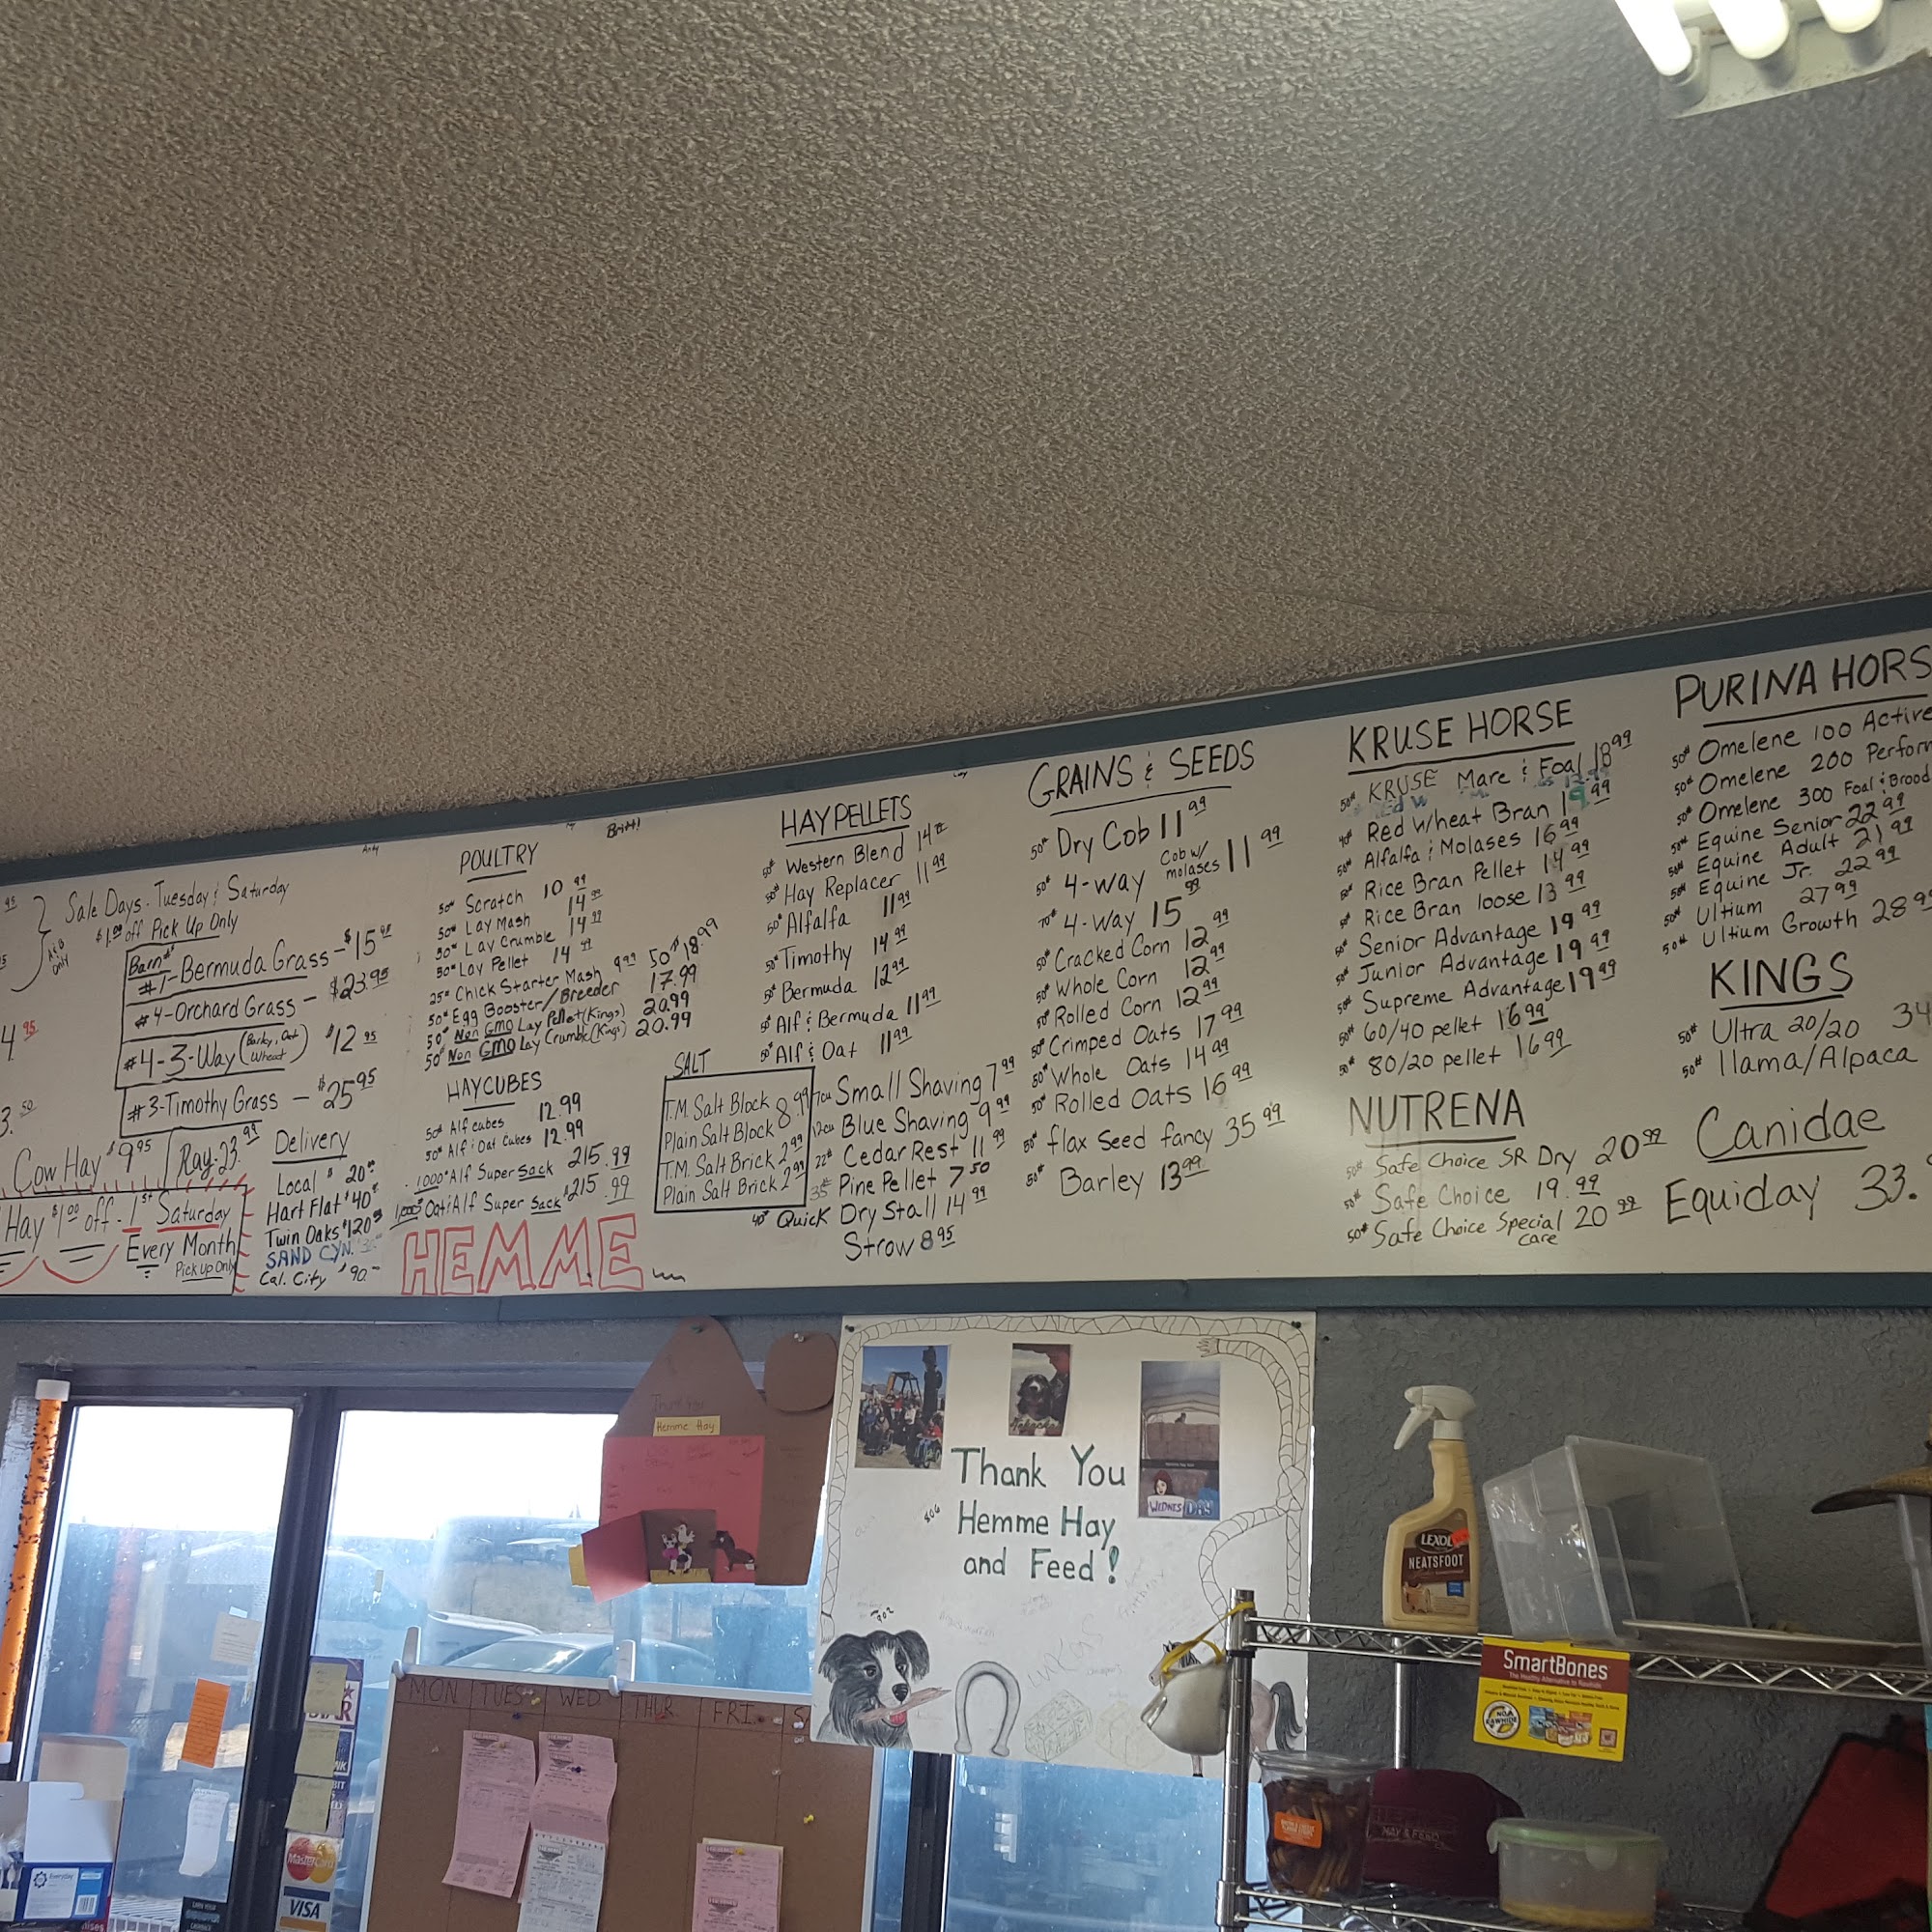 Sale Days - Tuesday & Saturday
$1.00 off Pick Up Only
A&B Only
Barn#
#1-Bermuda Grass - $15.95
#4-Orchard Grass - $23.95
#4-3-Way (Barley, Oat Wheat) $12.95
#3-Timothy Grass - $25.95
Cow Hay $9.95
Hay $1.00 off - 1st Saturday
Every Month
Pick Up Only
Delivery
Local $20.
Hart Flat $40
Twin Oaks $120
SAND CYN.
Cal. City $90.-
Britt!
POULTRY
50# Scratch 10.99
50# Lay Mash 14.99
50# Lay Crumble 14.99
50# Lay Pellet 14.99
25# Chick Starter Mash 9.99 50# 18.99
50# Egg Booster/Breeder 17.99
50# Non GMO Lay Pellet (Kings) 20.99
50# Non GMO Lay Crumble (Kings) 20.99
HAYCUBES
50# Alf cubes 12.99
50# Alf & Oat Cubes 12.99
1000# Alf Super Sack 215.99
1,000# Oat & Alf Super Sack $215.99
HEMME
SALT
T.M. Salt Block 8.99
Plain Salt Block
T.M. Salt Brick 2.99
Plain Salt Brick 2.99
HAY PELLETS
50# Western Blend
50# Hay Replacer 11.99
50# Alfalfa 11.99
50# Timothy 14.99
50# Bermuda 12.99
50# Alf & Bermuda 11.99
50# Alf & Oat 11.99
Small Shaving 7.99
12cu Blue Shaving 9.99
22# Cedar Rest 11.99
35# Pine Pellet 7.50
40# Quick Dry Stall 14.99
Straw 8.95
GRAINS & SEEDS
50# Dry Cob 11.99
50# 4-way Cob w/ molases 11.99
70# 4-Way 15.99
50# Cracked Corn 12.99
50# Whole Corn 12.99
50# Rolled Corn 12.99
50# Crimped Oats 17.99
50# Whole Oats 14.99
50# Rolled Oats 16.99
50# flax seed fancy 35.99
50# Barley 13.99
KRUSE HORSE
50# KRUSE Mare & Foal 18.99
40# Red Wheat Bran 19.99
50# Alfalfa & Molases 16.99
50# Rice Bran Pellet 14.99
50# Rice Bran loose 13.99
50# Senior Advantage 19.99
50# Junior Advantage 19.99
50# Supreme Advantage 19.99
50# 60/40 pellet 16.99
50# 80/20 pellet 16.99
NUTRENA
50# Safe Choice SR Dry 20.99
50# Safe Choice 19.99
50# Safe Choice Special care 20.99
PURINA HORS
50# Omelene 100 Active
50# Omelene 200 Perform
50# Omelene 300 Foal & Brood
50# Equine Senior 22.99
50# Equine Adult 21.99
50# Equine Jr. 22.99
50# Ultium 27.99
50# Ultium Growth 28.99
KINGS
50# Ultra 20/20 34
50# llama/Alpaca
Canidae
Equiday 33.
Thank You
Hemme Hay
Thank You
Hemme Hay
and Feed!
WEDNESDAY
LEXOL
NEATSFOOT
SmartBones
MON TUES WED THUR FRI S
HAY & FEED
MasterCard
VISA